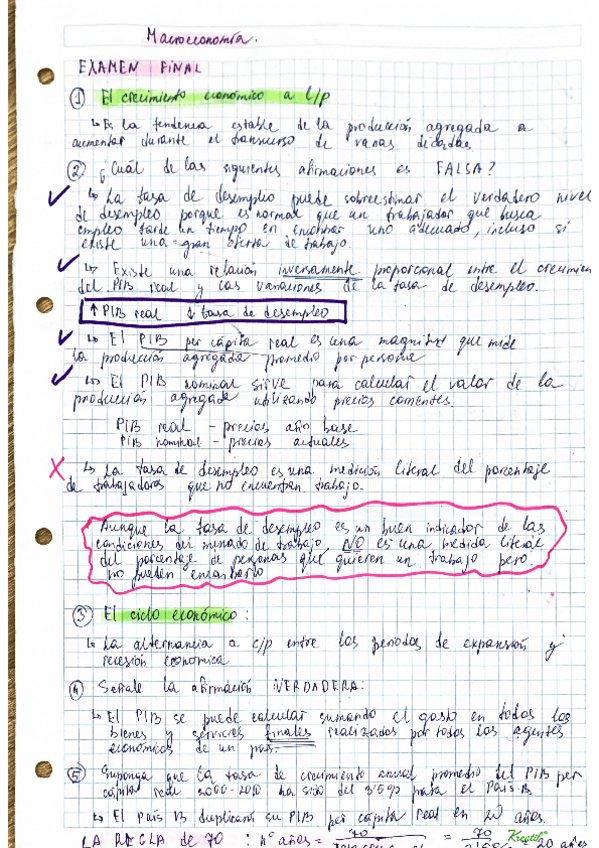 Macroeconomía.
EXAMEN FINAL
① El crecimiento económico a l/p
↳ Es la tendencia estable de la producción agregada a
aumentar durante el transcurso de varias décadas.
② ¿Cuál de las siguientes afirmaciones es FALSA?
✓ ↳ La tasa de desempleo puede sobreestimar el verdadero nivel
de desempleo porque es normal que un trabajador que busca
empleo tarde un tiempo en encontrar uno adecuado, incluso si
existe una gran oferta de trabajo.
✓ ↳ Existe una relación inversamente proporcional entre el crecimien
del PIB real y las variaciones de la tasa de desempleo.
↑ PIB real ↓ tasa de desempleo
✓ ↳ El PIB per cápita real es una magnitud que mide
la producción agregada promedio por persona
✓ ↳ El PIB nominal sirve para calcular el valor de la
producción agregada utilizando precios corrientes.
PIB real - precios año base
PIB nominal - precios actuales
X ↳ La tasa de desempleo es una medición literal del porcentaje
de trabajadores que no encuentran trabajo.
Aunque la tasa de desempleo es un buen indicador de las
condiciones del mercado de trabajo NO es una medida literal
del porcentaje de personas que quieren un trabajo pero
no pueden encontrarlo
③ El ciclo económico:
↳ La alternancia a c/p entre los periodos de expansión y
recesión económica
④ Señale la afirmación VERDADERA:
↳ El PIB se puede calcular sumando el gasto en todos los
bienes y servicios finales realizados por todos los agentes
económicos de un país.
⑤ Suponga que la tasa de crecimiento anual promedio del PIB per
cápita real 2000-2010 ha sido del 3'5% para el País B
↳ El País B duplicará su PIB per cápita real en 20 años.
LA REGLA de 70 : nº años = 70 = 70 = 20 años